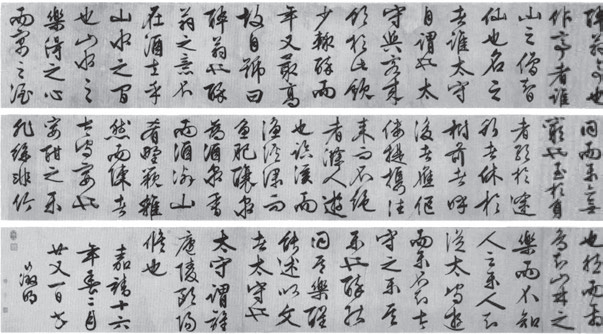 醉翁亭也
作亭者誰
山之僧智
仙也名之
者誰太守
自謂也太
守與客來
飲於此飲
少輒醉而
年又最高
故自號曰
醉翁也醉
翁之意不
在酒在乎
山水之間
也山水之
樂得之心
而寓之酒
同而樂亦無
窮也至於負
者歌於途
行者休於
樹前者呼
後者應傴
僂提攜往
來而不絕
者滁人遊
也臨溪而
漁溪深而
魚肥釀泉
為酒泉香
而酒洌山
肴野蔌雜
然而陳者
太守宴也
宴酣之樂
非絲非竹
也然而禽
鳥知山林之
樂而不知
人之樂人知
從太守遊
而樂而不知太
守之樂其
樂也醉能
同其樂醒
能述以文
者太守也
太守謂誰
廬陵歐陽
脩也
嘉靖十六
年 二月
廿又一日書
徵明